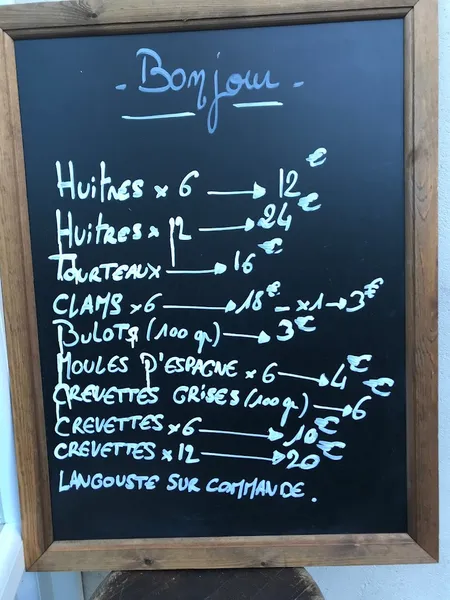 - Bonjour -
HUITRES x 6 → 12€
HUITRES x 12 → 24€
TOURTEAUX → 16€
CLAMS x 6 → 18€ - x1 → 3€
BULOTS (100 gr) → 3€
MOULES D'ESPAGNE x 6 → 4€
CREVETTES GRISES (100 gr) → 6€
CREVETTES x 6 → 10€
CREVETTES x 12 → 20€
LANGOUSTE SUR COMMANDE.